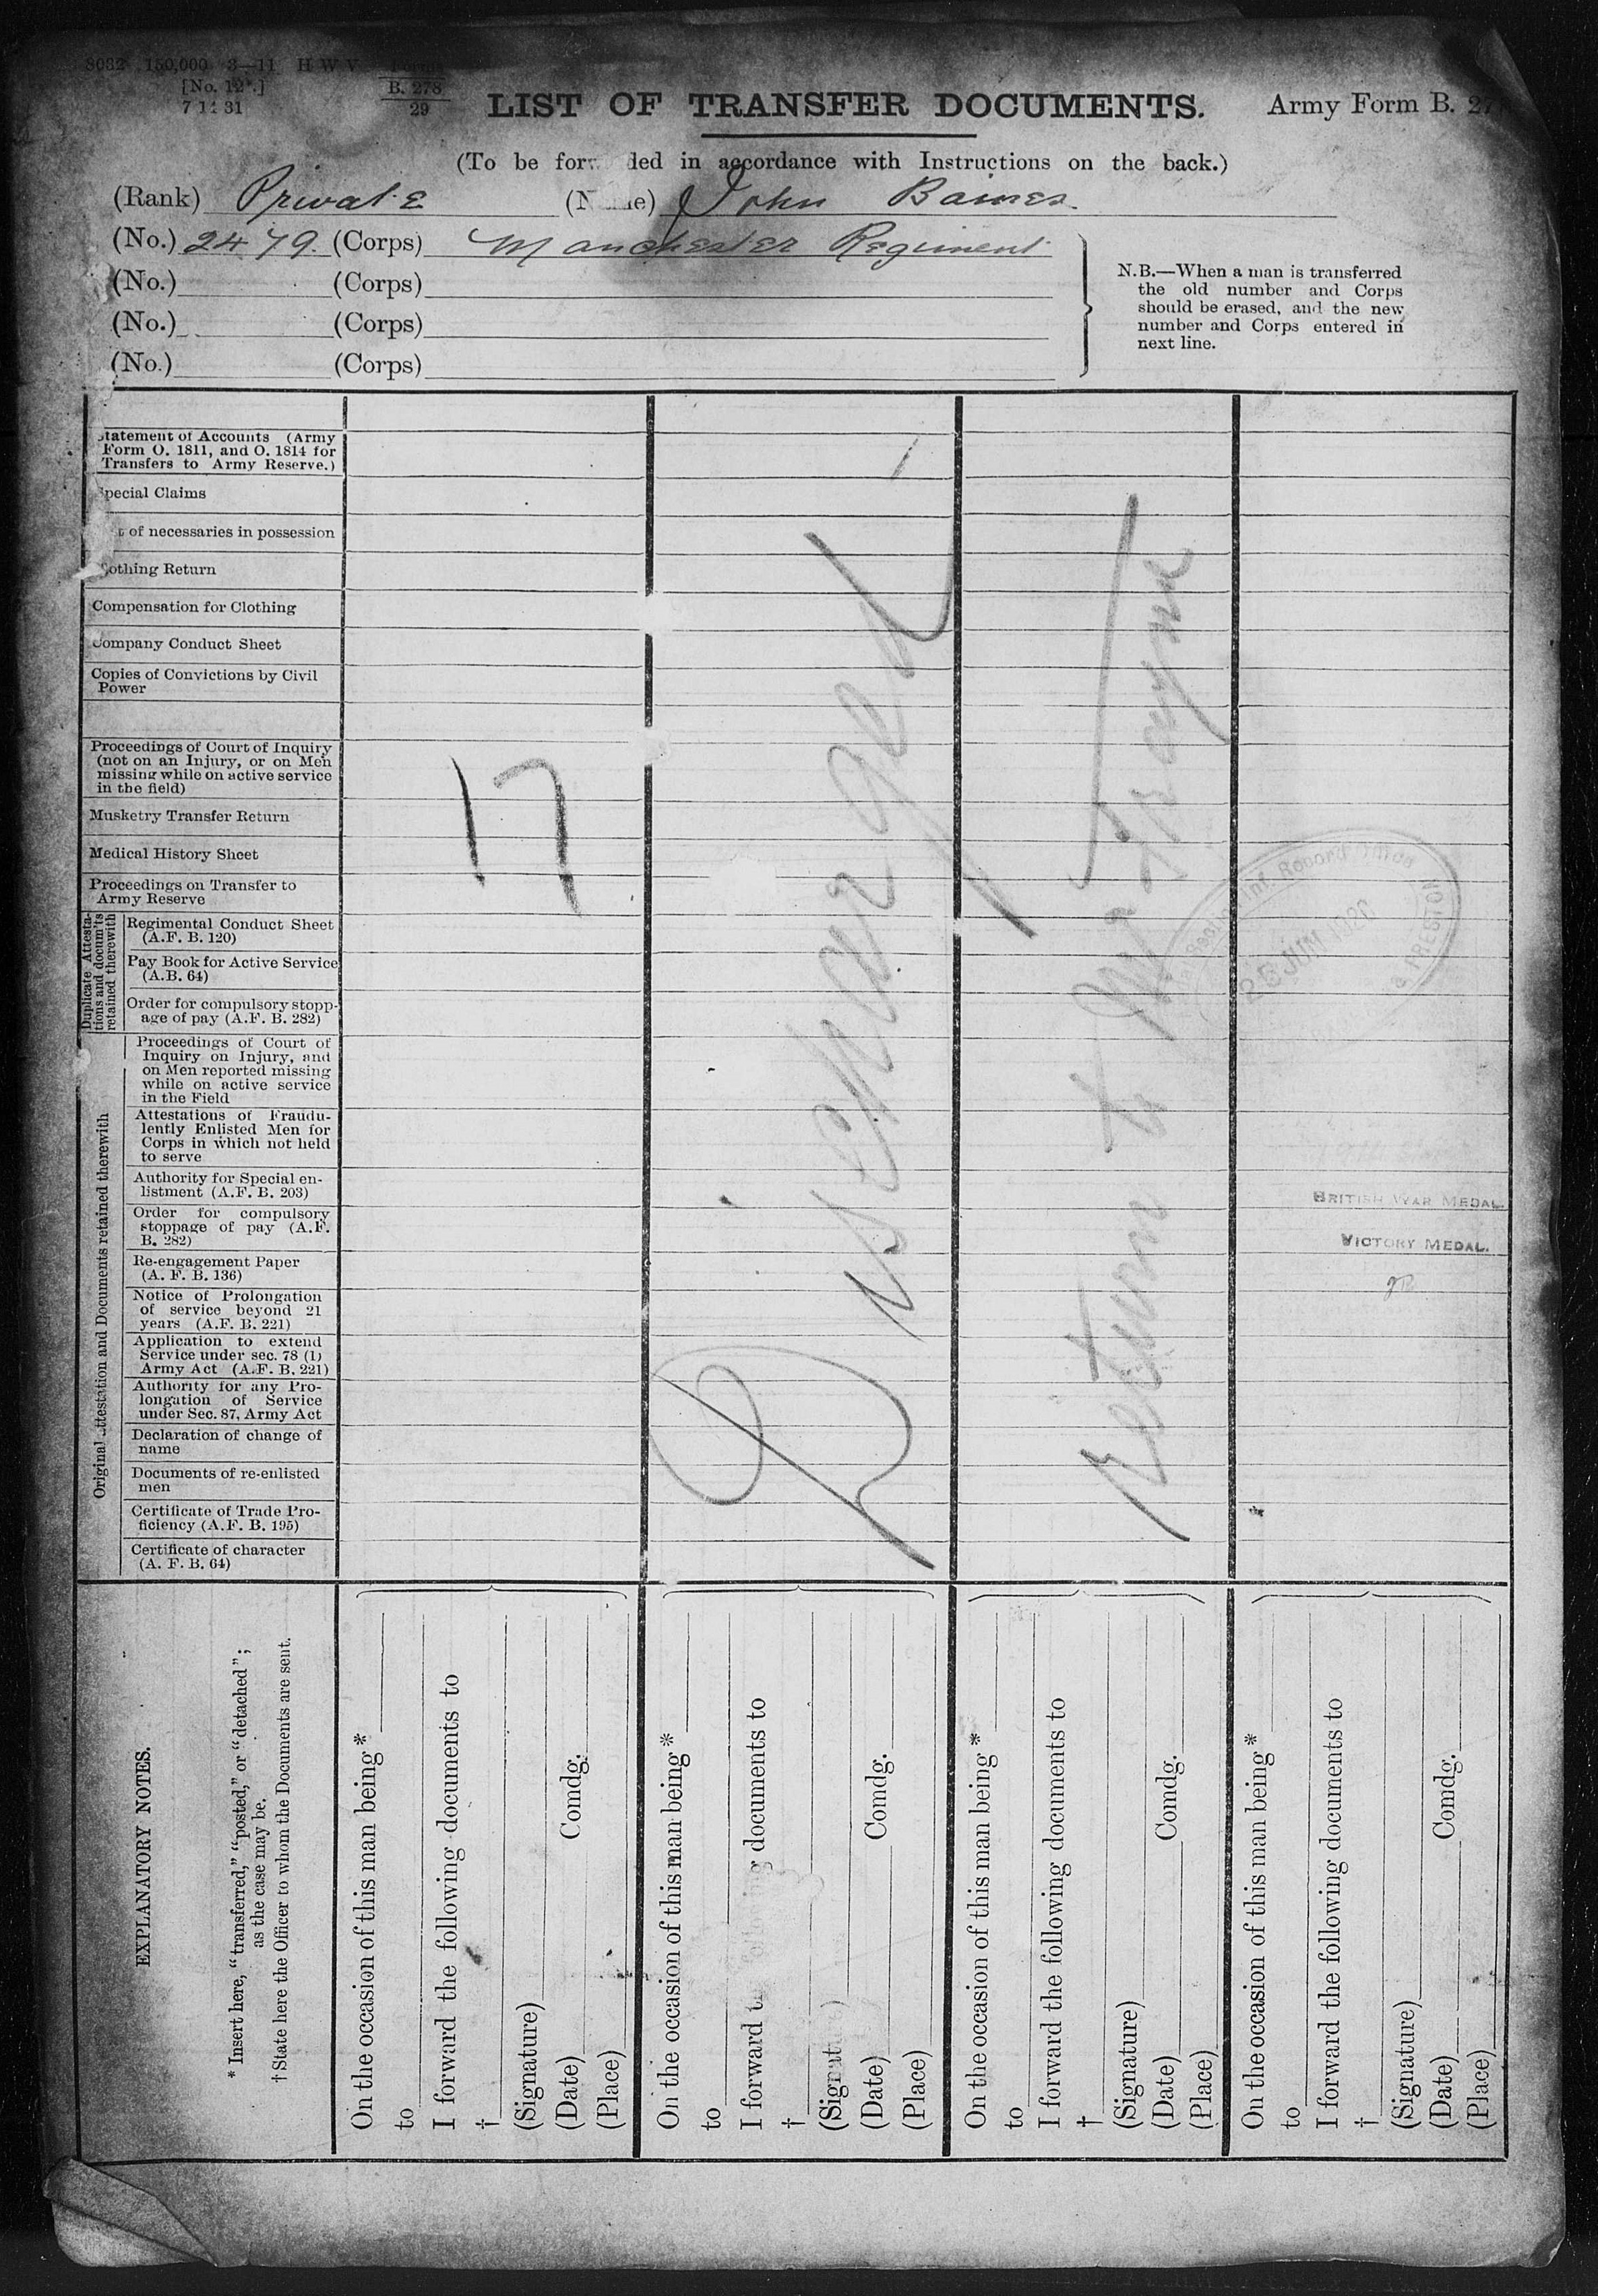 8032 150,000 3—11 H W V
[No. 12*.]
7 11 31
Forms
B. 278
29
LIST OF TRANSFER DOCUMENTS.
Army Form B. 27
(To be for ded in accordance with Instructions on the back.)
(Rank) Private (N me) John Baines.
(No.) 2479. (Corps) Manchester Regiment
(No.) (Corps)
(No.) (Corps)
(No.) (Corps)
N.B.—When a man is transferred
the old number and Corps
should be erased, and the new
number and Corps entered in
next line.
Statement of Accounts (Army
Form O. 1811, and O. 1814 for
Transfers to Army Reserve.)
Special Claims
of necessaries in possession
othing Return
Compensation for Clothing
Company Conduct Sheet
Copies of Convictions by Civil
Power
Proceedings of Court of Inquiry
(not on an Injury, or on Men
missing while on active service
in the field)
Musketry Transfer Return
Medical History Sheet
Proceedings on Transfer to
Army Reserve
Duplicate Attesta-
tions and docum'ts
retained therewith
Regimental Conduct Sheet
(A.F. B. 120)
Pay Book for Active Service
(A.B. 64)
Order for compulsory stopp-
age of pay (A.F. B. 282)
Original Attestation and Documents retained therewith
Proceedings of Court of
Inquiry on Injury, and
on Men reported missing
while on active service
in the Field
Attestations of Fraudu-
lently Enlisted Men for
Corps in which not held
to serve
Authority for Special en-
listment (A.F. B. 203)
Order for compulsory
stoppage of pay (A.F.
B. 282)
Re-engagement Paper
(A. F. B. 136)
Notice of Prolongation
of service beyond 21
years (A.F. B. 221)
Application to extend
Service under sec. 78 (1)
Army Act (A.F. B. 221)
Authority for any Pro-
longation of Service
under Sec. 87, Army Act
Declaration of change of
name
Documents of re-enlisted
men
Certificate of Trade Pro-
ficiency (A.F. B. 195)
Certificate of character
(A. F. B. 64)
17
Discharged
Return to
Inf. Record Office
25 JUN 1920
PRESTON
BRITISH WAR MEDAL
VICTORY MEDAL.
EXPLANATORY NOTES.
* Insert here, "transferred," "posted," or "detached";
as the case may be.
†State here the Officer to whom the Documents are sent.
On the occasion of this man being*
to
I forward the following documents to
†
(Signature)
(Date) Comdg.
(Place)
On the occasion of this man being*
to
I forward t following documents to
†
(Signature)
(Date) Comdg.
(Place)
On the occasion of this man being*
to
I forward the following documents to
†
(Signature)
(Date) Comdg.
(Place)
On the occasion of this man being*
to
I forward the following documents to
†
(Signature)
(Date) Comdg.
(Place)